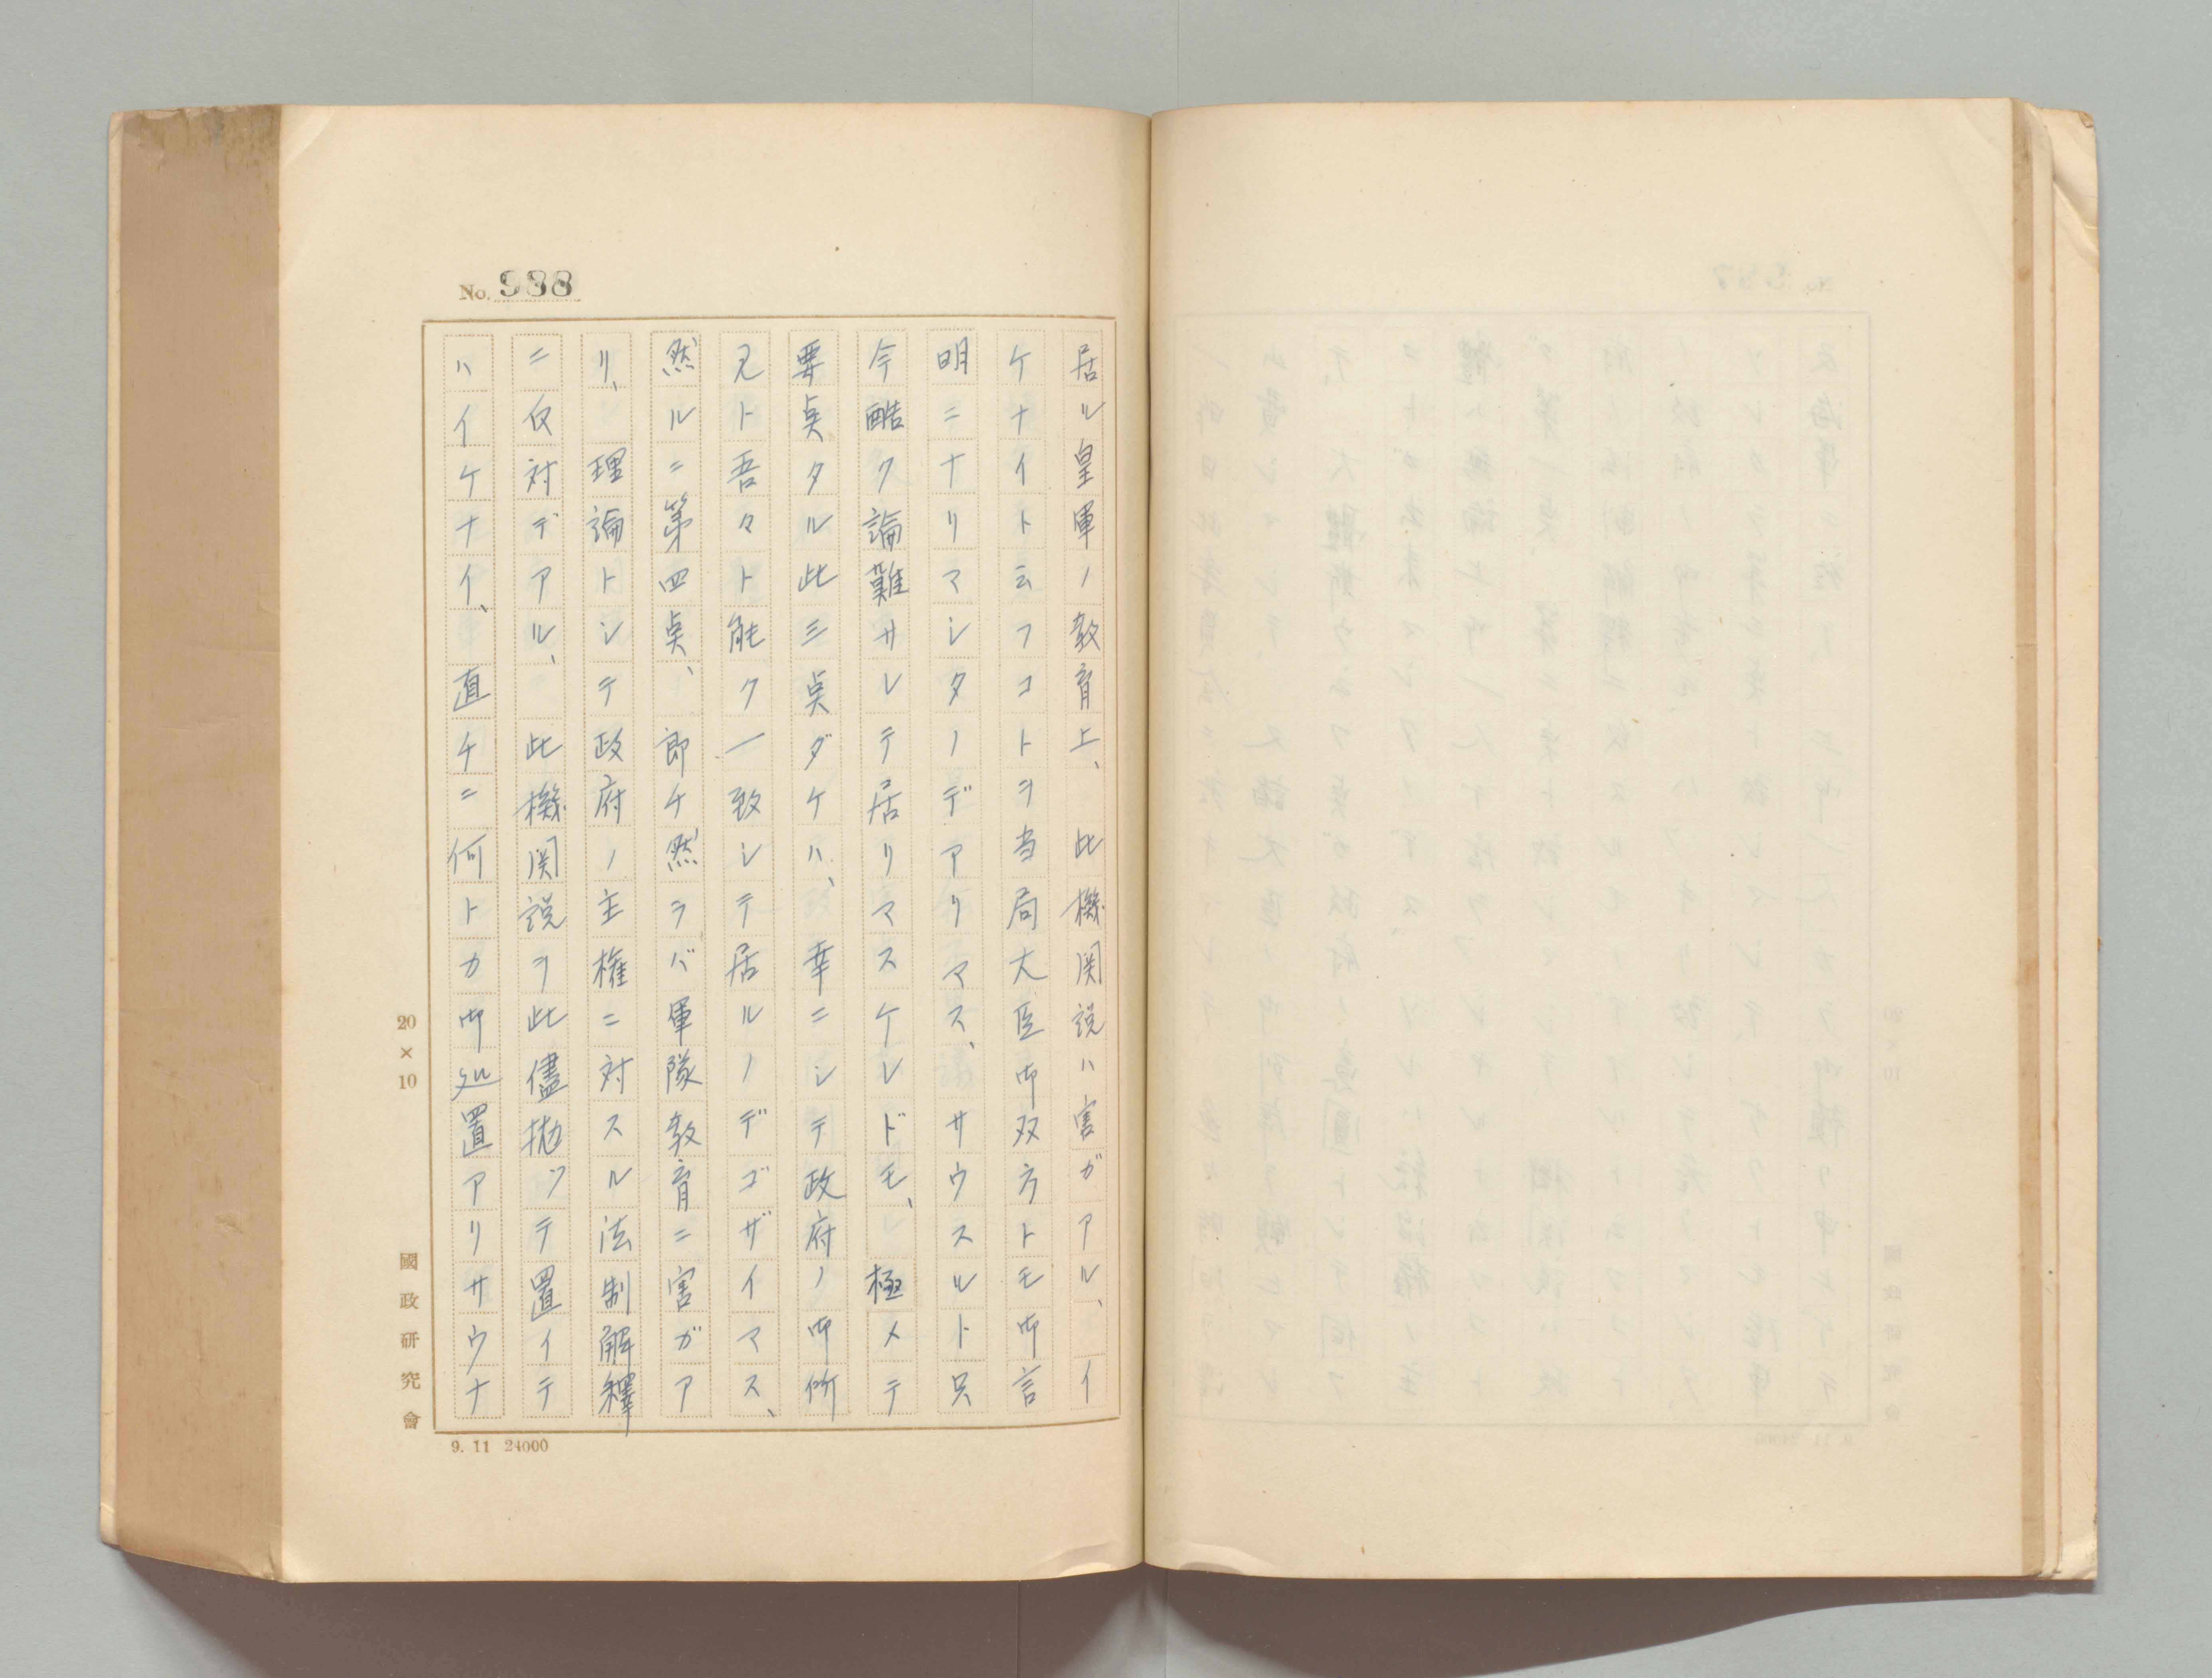 No. 988
居ル皇軍ノ教育上、此機関説ハ害ガアル、イ
ケナイト云フコトヲ当局大臣御双方トモ御言
明ニナリマシタノデアリマス、サウスルト只
今酷ク論難サレテ居リマスケレドモ、極メテ
要点タル此三点ダケハ、幸ニシテ政府ノ御所
見ト吾々ト能ク一致シテ居ルノデゴザイマス、
然ルニ第四点、即チ然ラバ軍隊教育ニ害ガア
リ、理論トシテ政府ノ主権ニ対スル法制解釋
ニ反対デアル、此機関説ヲ此儘抛ツテ置イテ
ハイケナイ、直チニ何トカ御処置アリサウナ
20×10
國政研究會
9. 11 24000